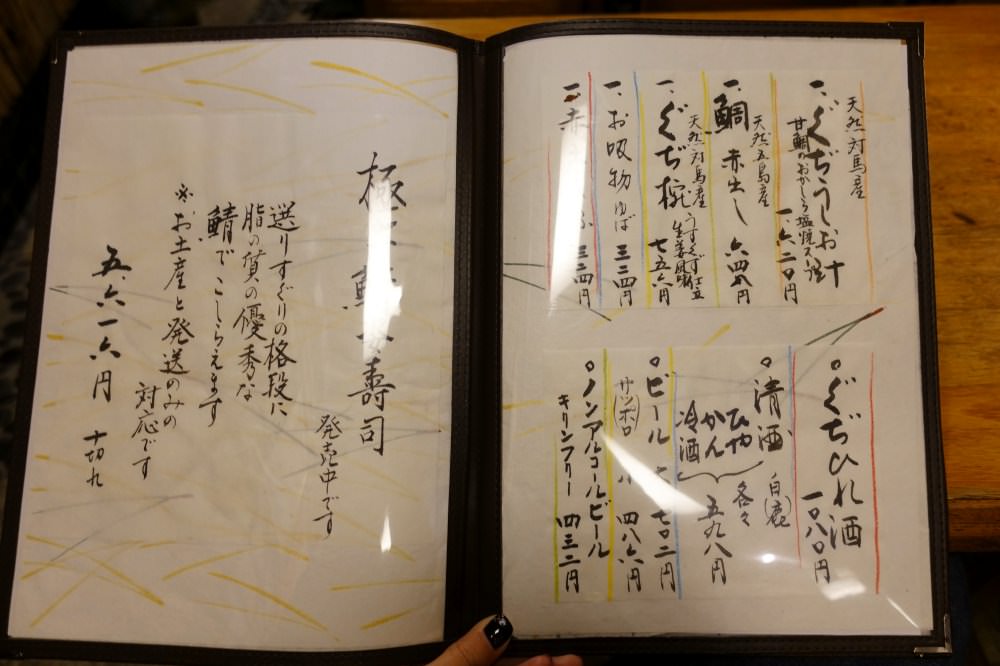 天然対馬産
一、ぐぢうしお汁
甘鯛のおかしら塩焼
一、六二〇円
天然五島産
一、鯛赤出し 六四八円
天然対馬産
一、ぐぢ椀 うすくず仕立
生姜風味
七五六円
一、お吸物 ゆば 三二四円
一、赤 三二四円
○ぐぢひれ酒
一〇八〇円
○清酒 (白鹿)
ひや
かん
冷酒
各々
五九八円
○ビール 七〇二円
(サッポロ) 四八六円
○ノンアルコールビール
キリンフリー 四三二円
極 寿司
発売中です
選りすぐりの格段に
脂の質の優秀な
鯖でこしらえます
※お土産と発送のみの
対応です
五六一六円 十切れ